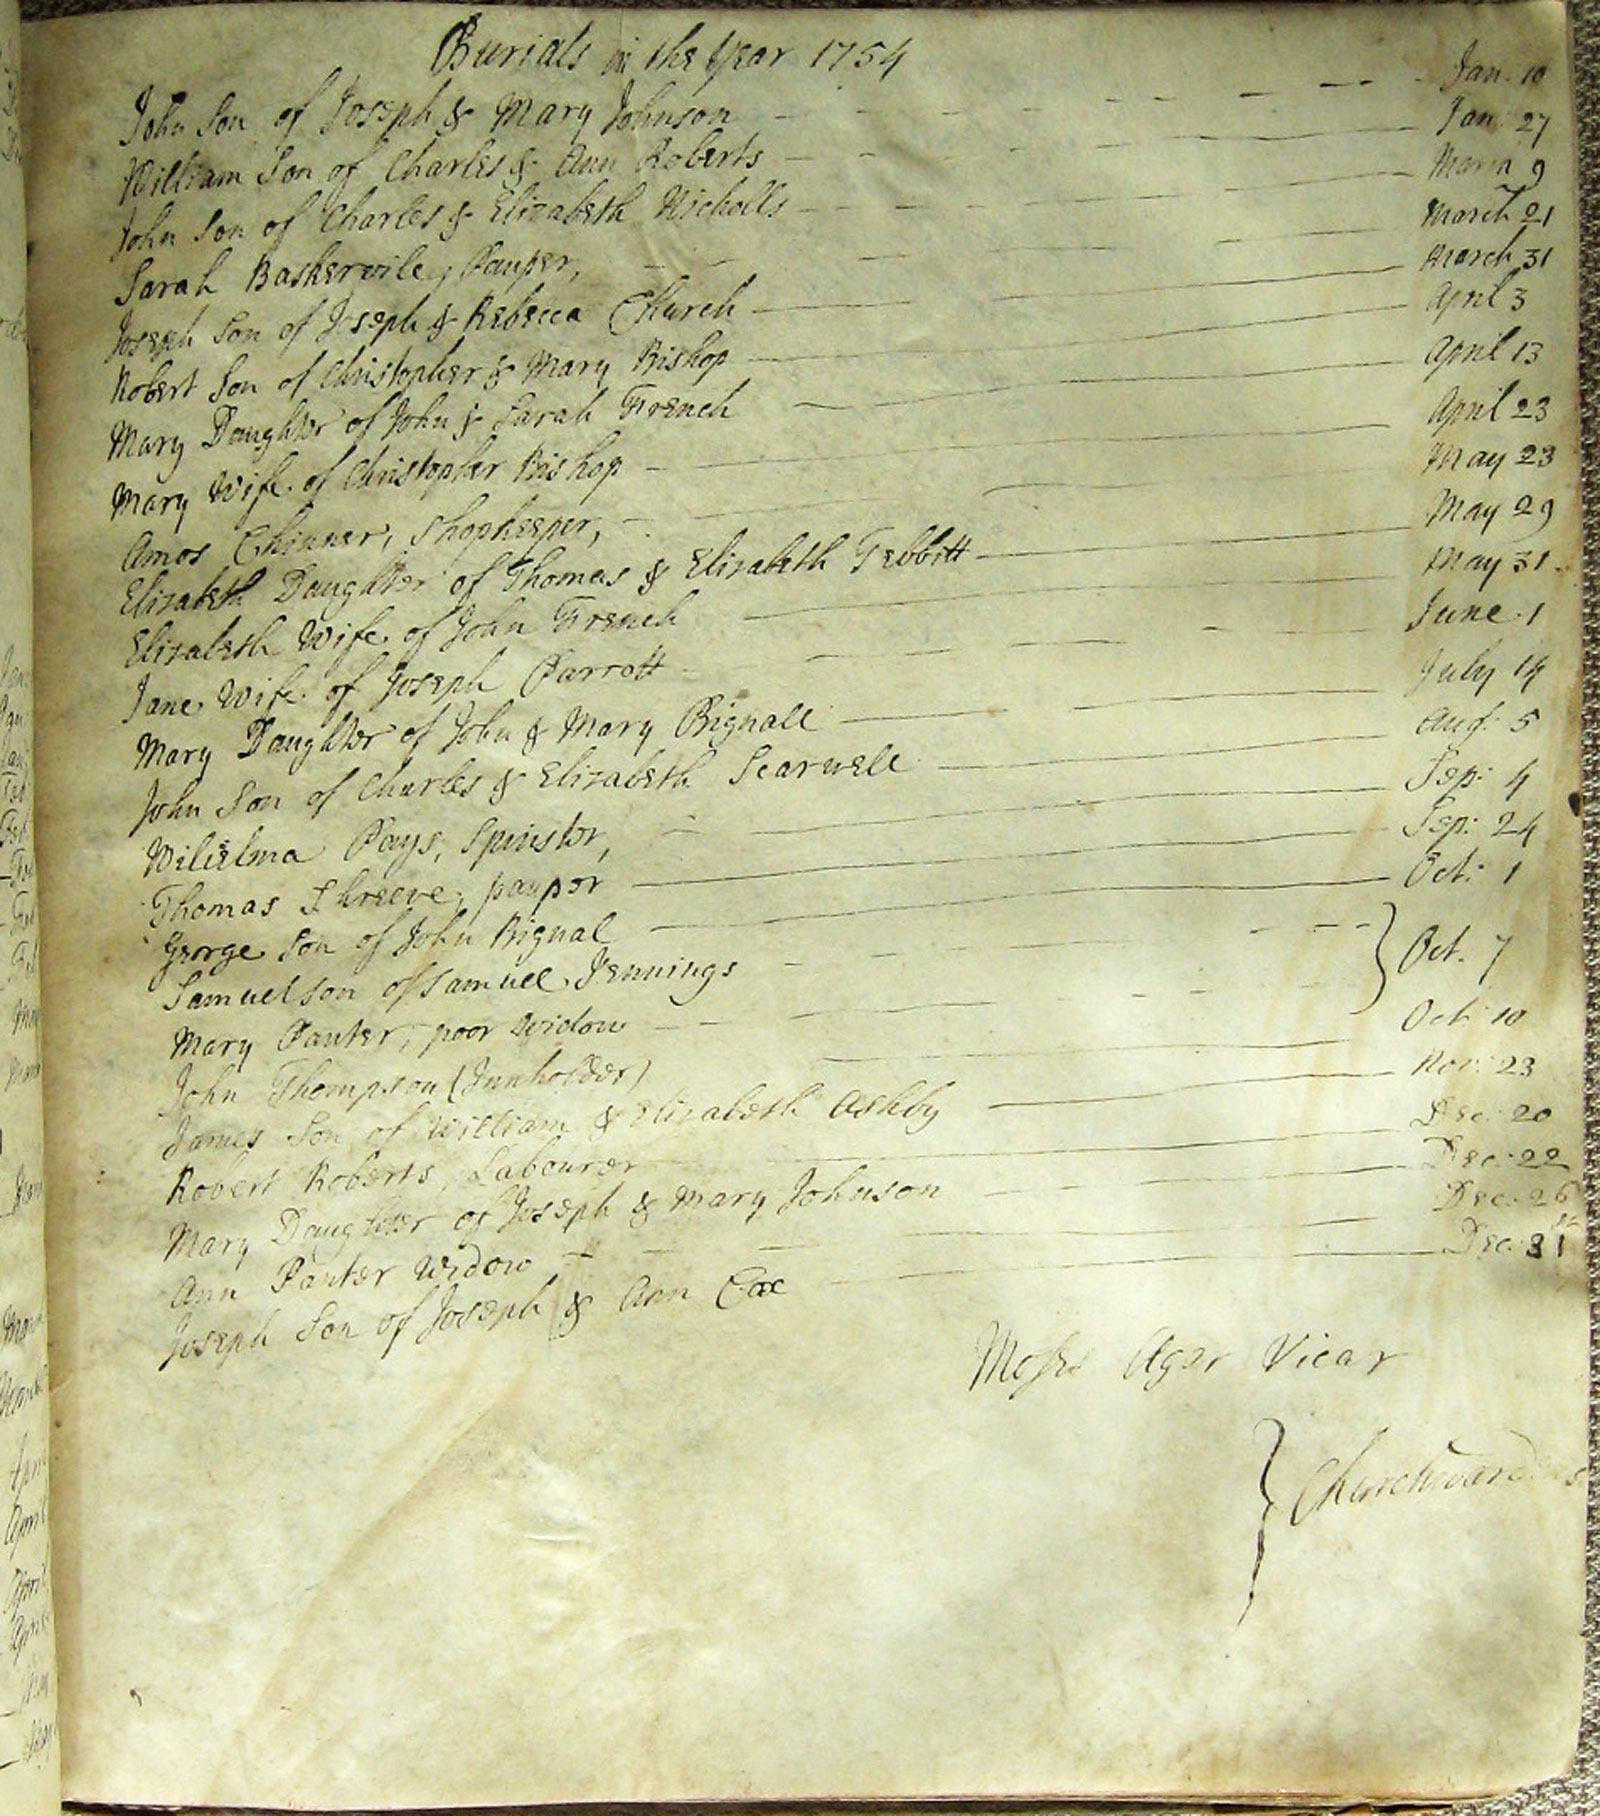 Burials in the Year 1754
John Son of Joseph & Mary Johnson Jan. 10
William Son of Charles & Ann Roberts Jan: 27
John Son of Charles & Elizabeth Nicholls March 9
Sarah Baskervile, Pauper, March 21
Joseph Son of Joseph & Rebecca Church March 31
Robert Son of Christopher & Mary Bishop April 3
Mary Daughter of John & Sarah French April 13
Mary Wife of Christopher Bishop April 23
Amos Chinner, Shopkeeper, May 23
Elizabeth Daughter of Thomas & Elizabeth Tebbitt May 29
Elizabeth Wife of John French May 31
Jane Wife of Joseph Parrott June 1
Mary Daughter of John & Mary Bignall July 14
John Son of Charles & Elizabeth Scarwell Aug: 5
Wilielma Pays, Spinster, Sep: 4
Thomas Shreeve, pauper Sep: 24
George Son of John Bignal Oct: 1
Samuel Son of Samuel Jennings
Mary Panter, poor Widow } Oct. 7
John Thompson (Innholder) Oct: 10
James Son of William & Elizabeth Ashby Nov: 23
Robert Roberts, Labourer Dec: 20
Mary Daughter of Joseph & Mary Johnson Dec: 22
Ann Panter Widow Dec: 26
Joseph Son of Joseph & Ann Cox Dec: 31
Moses Agar Vicar
} Churchwardens